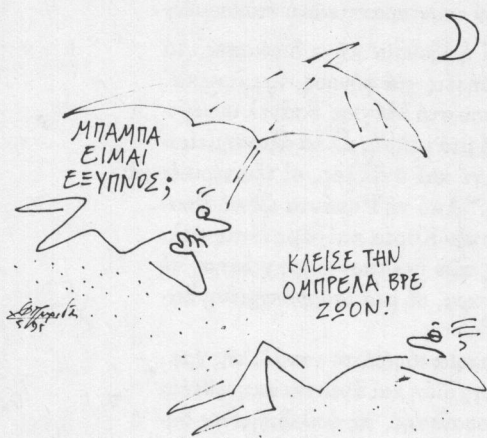 ΜΠΑΜΠΑ
ΕΙΜΑΙ
ΕΞΥΠΝΟΣ;
ΚΛΕΙΣΕ ΤΗΝ
ΟΜΠΡΕΛΑ ΒΡΕ
ΖΩΟΝ!